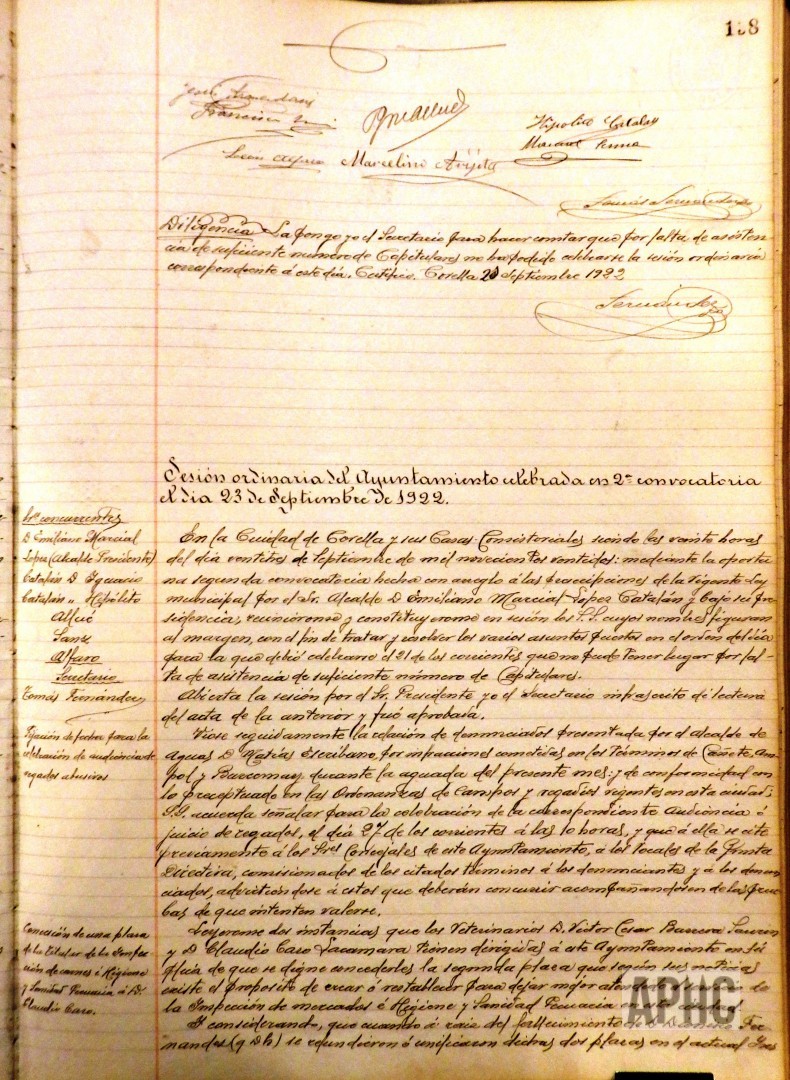 158
Francisco
Hipolito Catalan
Marcelino Arijeta
Tomás Fernández
Diligencia La pongo yo el Secretario para hacer constar que por falta de asisten
cia de suficiente numero de Capitulares no ha podido celebrarse la sesión ordinaria
correspondiente á este dia. Certifico. Corella 21 Septiembre 1922
Sesión ordinaria del Ayuntamiento celebrada en 2ª convocatoria
el dia 23 de Septiembre de 1922.
Sres concurrentes
D Emiliano Marcial
Lopez (Alcalde Presidente)
Catalán D Ignacio
Catalán " Hipólito
Sanz
Alfaro
Secretario
Tomás Fernández
En la Ciudad de Corella y sus Casas Consistoriales siendo las veinte horas
del dia ventitres de Septiembre de mil novecientos ventidos: mediante la oportu
na segunda convocatoria hecha con arreglo á las prescripciones de la vigente Ley
municipal por el Sr. Alcalde D Emiliano Marcial Lopez Catalán y bajo su pre
sidencia, reunieronse y constituyeronse en sesión los S.S. cuyos nombres figuran
al margen, con el fin de tratar y resolver los varios asuntos puestos en el orden del dia
para la que debió celebrarse el 21 de los corrientes que no pudo tener lugar por fal
ta de asistencia de suficiente número de Capitulares.
Abierta la sesión por el Sr. Presidente yo el Secretario infrascrito di lectura
del acta de la anterior y fué aprobada.
Fijación de fecha para la
celebración de audiencia de
regados abusivos
Vióse seguidamente la relación de denunciados presentada por el Alcalde de
Aguas D Matías Escribano, por infracciones cometidas en los términos de Cañete,
y durante la aguada del presente mes: y de conformidad con
lo preceptuado en las Ordenanzas de Campos y regadios vigentes en esta ciudad
S.S. acuerda señalar para la celebración de la correspondiente Audiencia ó
juicio de regados, el dia 27 de los corrientes á las 10 horas, y que á ella se cite
previamente á los Sres Concejales de este Ayuntamiento, á los Vocales de la Junta
Directiva, comisionados de los citados términos á los denunciantes y á los denun
ciados, advirtiendose á estos que deberán concurrir acompañandose de las prue
bas de que intenten valerse.
Concesión de una plaza
de titular de la Inspec
ción de carnes é Higiene
y Sanidad Pecuaria á D.
Claudio Caro.
Leyeronse dos instancias que los Veterinarios D. Victor Cesar Barrera
y D Claudio Caro Lacamara tienen dirigidas á este Ayuntamiento en sú
plica de que se digne concederles la segunda plaza que según sus noticias
existe el proposito de crear ó restablecer para dejar mejor atendido el servicio de
la Inspección de mercados é Higiene y Sanidad Pecuaria en esta ciudad
Y considerando, que cuando á raiz del fallecimiento de D Fer
nandez (q D h) se refundieron ó unificaron dichas dos plazas en el actual
APHC